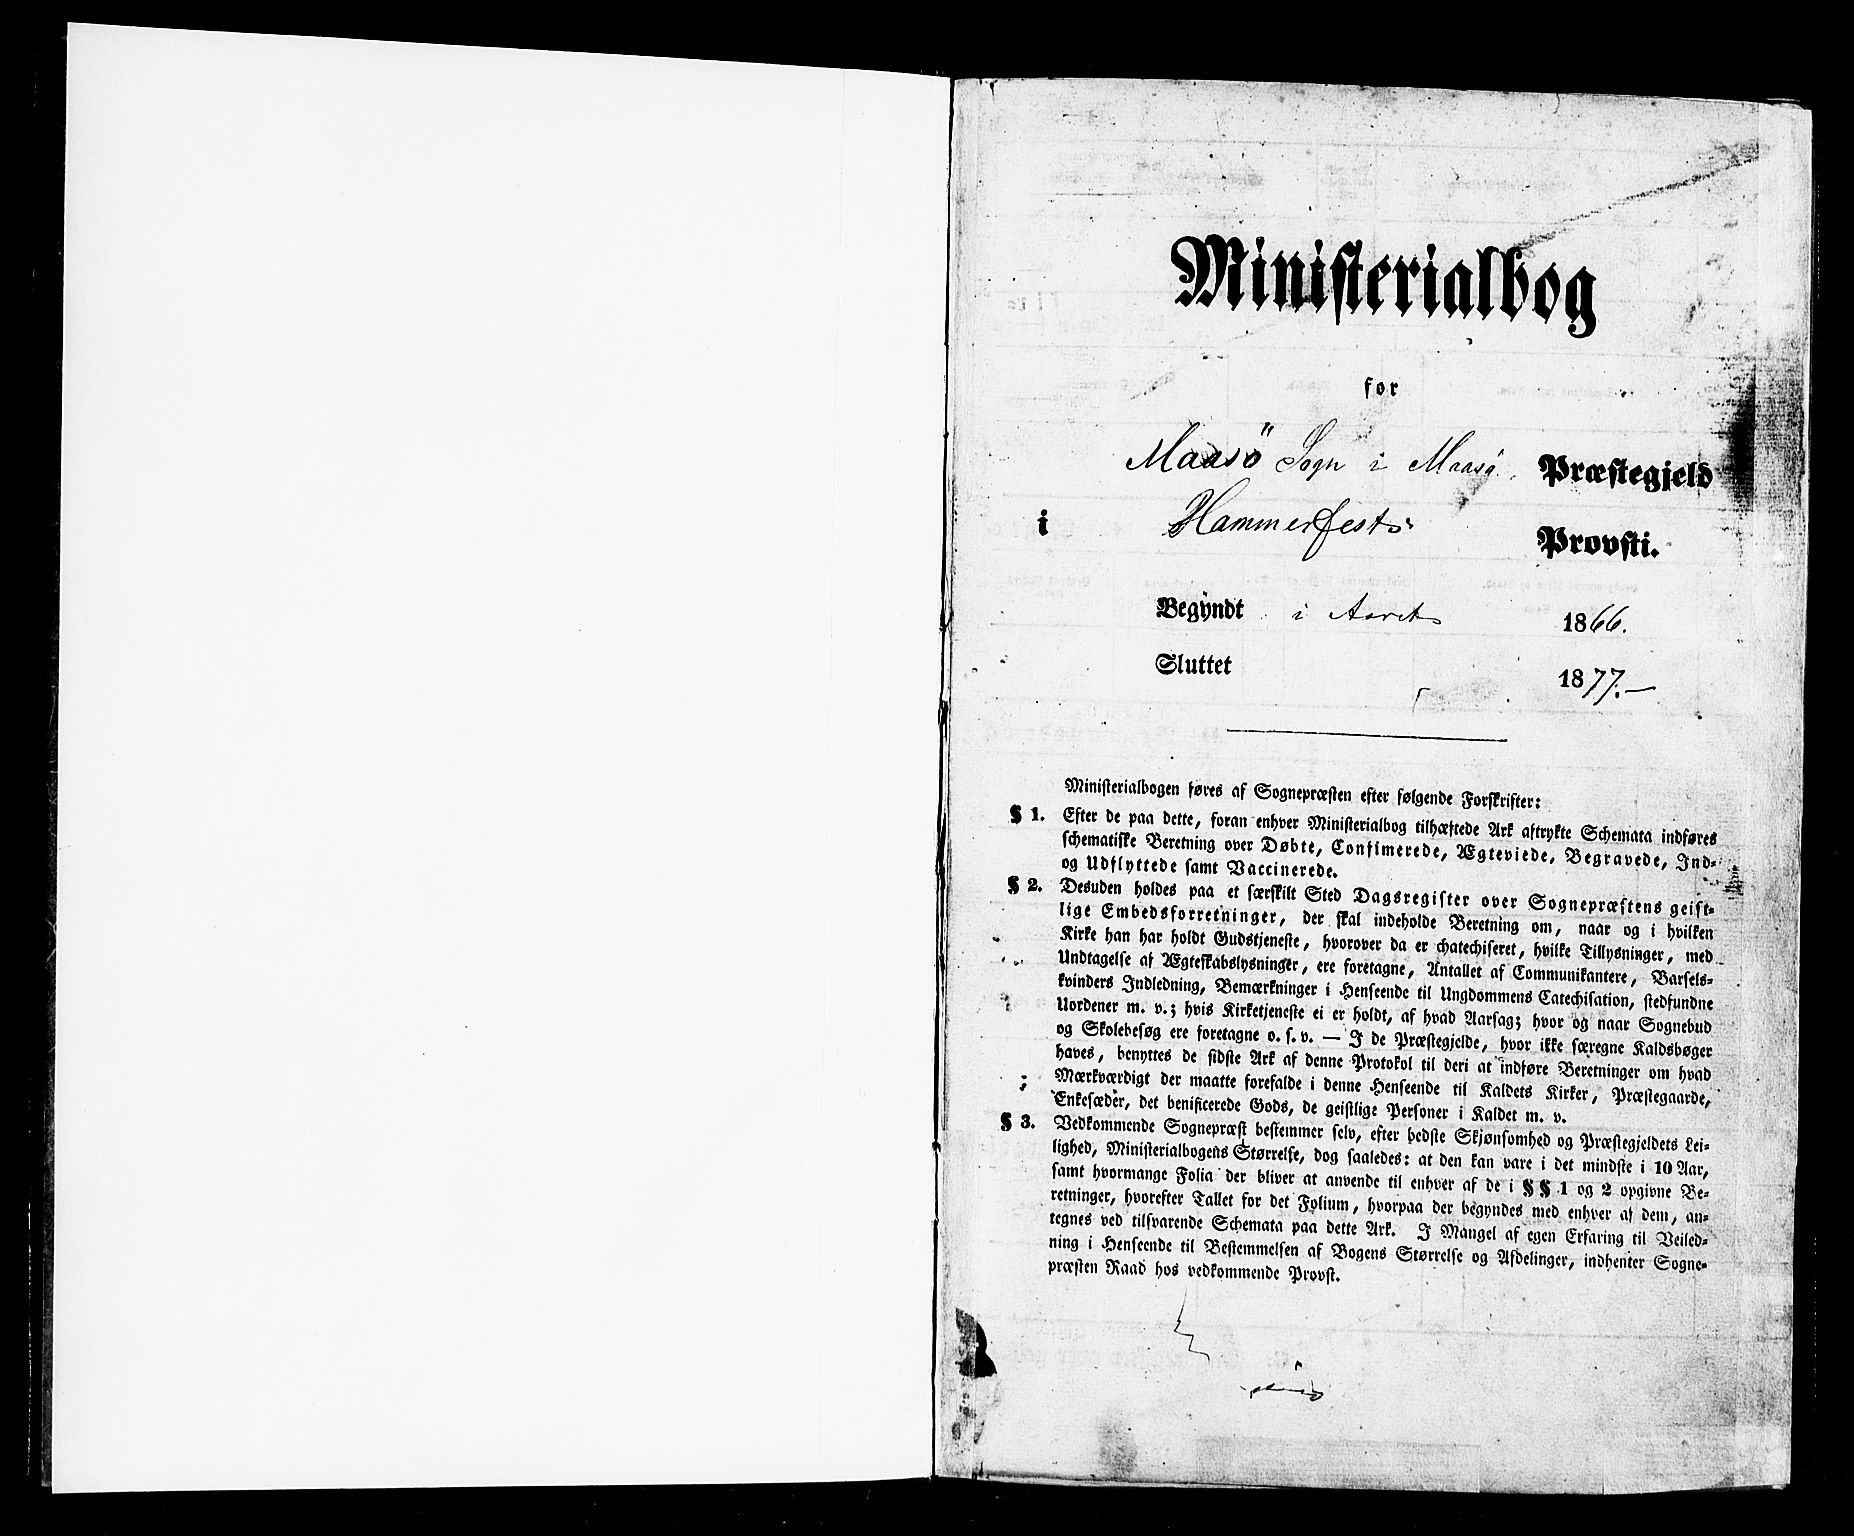 Ministerialbog
for
Maasö Sogn i Maasö Præstegjeld
i Hammerfests Provsti.
Begyndt i Aaret 1866.
Sluttet 1877.—
Ministerialbogen føres af Sognepræsten efter følgende Forskrifter:
§ 1. Efter de paa dette, foran enhver Ministerialbog tilhæftede Ark aftrykte Schemata indføres
schematiske Beretning over Døbte, Confimerede, Ægteviede, Begravede, Ind-
og Udflyttede samt Vaccinerede.
§ 2. Desuden holdes paa et særskilt Sted Dagsregister over Sognepræstens geist-
lige Embedsforretninger, der skal indeholde Beretning om, naar og i hvilken
Kirke han har holdt Gudstjeneste, hvorover da er chatechiseret, hvilke Tillysninger, med
Undtagelse af Ægteskabslysninger, ere foretagne, Antallet af Communikantere, Barsels-
kvinders Indledning, Bemærkninger i Henseende til Ungdommens Catechisation, stedfundne
Uordener m. v.; hvis Kirketjeneste ei er holdt, af hvad Aarsag; hvor og naar Sognebud
og Skolebesøg ere foretagne o. s. v. — I de Præstegjelde, hvor ikke særegne Kaldsbøger
haves, benyttes de sidste Ark af denne Protokol til deri at indføre Beretninger om hvad
Mærkværdigt der maatte forefalde i denne Henseende til Kaldets Kirker, Præstegaarde,
Enkesæder, det benificerede Gods, de geistlige Personer i Kaldet m. v.
§ 3. Vedkommende Sognepræst bestemmer selv, efter bedste Skjønsomhed og Præstegjeldets Lei-
lighed, Ministerialbogens Størrelse, dog saaledes: at den kan vare i det mindste i 10 Aar,
samt hvormange Folia der bliver at anvende til enhver af de i §§ 1 og 2 opgivne Be-
retninger, hvorefter Tallet for det Folium, hvorpaa der begyndes med enhver af dem, an-
tegnes ved tilsvarende Schemata paa dette Ark. I Mangel af egen Erfaring til Veiled-
ning i Henseende til Bestemmelsen af Bogens Størrelse og Afdelinger, indhenter Sogne-
præsten Raad hos vedkommende Provst.